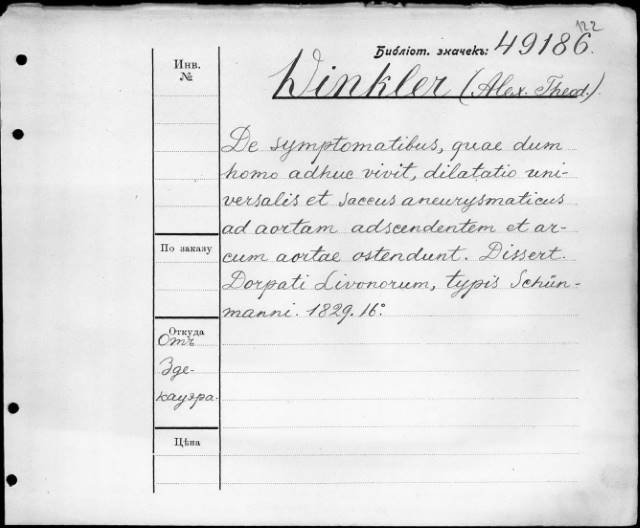 122
Библіот. значекъ: 49186.
Winkler (Alex. Theod.).
Инв.
№
De symptomatibus, quae dum
homo adhuc vivit, dilatatio uni-
versalis et saccus aneurysmaticus
ad aortam adscendentem et ar-
cum aortae ostendunt. Dissert.
Dorpati Livonorum, typis Schün-
manni. 1829. 16º.
По заказу
Откуда
Отъ
Эде-
кауэра.
Цѣна